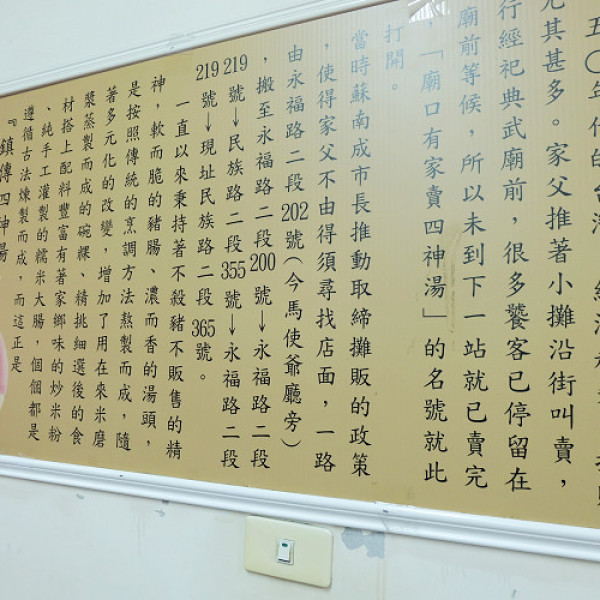 五〇年代的台灣
尤其甚多。家父推著小攤沿街叫賣，
行經祀典武廟前，很多饕客已停留在
廟前等候，所以未到下一站就已賣完
，「廟口有家賣四神湯」的名號就此
打開。
當時蘇南成市長推動取締攤販的政策
，使得家父不由得須尋找店面，一路
由永福路二段202號（今馬使爺廳旁）
，搬至永福路二段200號→永福路二段
219號→民族路二段355號→永福路二段
219號→現址民族路二段365號。
一直以來秉持著不殺豬不販售的精
神，軟而脆的豬腸、濃而香的湯頭，
是按照傳統的烹調方法熬製而成，隨
著多元化的改變，增加了用在來米磨
漿蒸製而成的碗粿、精挑細選後的食
材搭上配料豐富有著家鄉味的炒米粉
、純手工灌製的糯米大腸，個個都是
遵循古法煉製而成，而這正是
『鎮傳四神湯